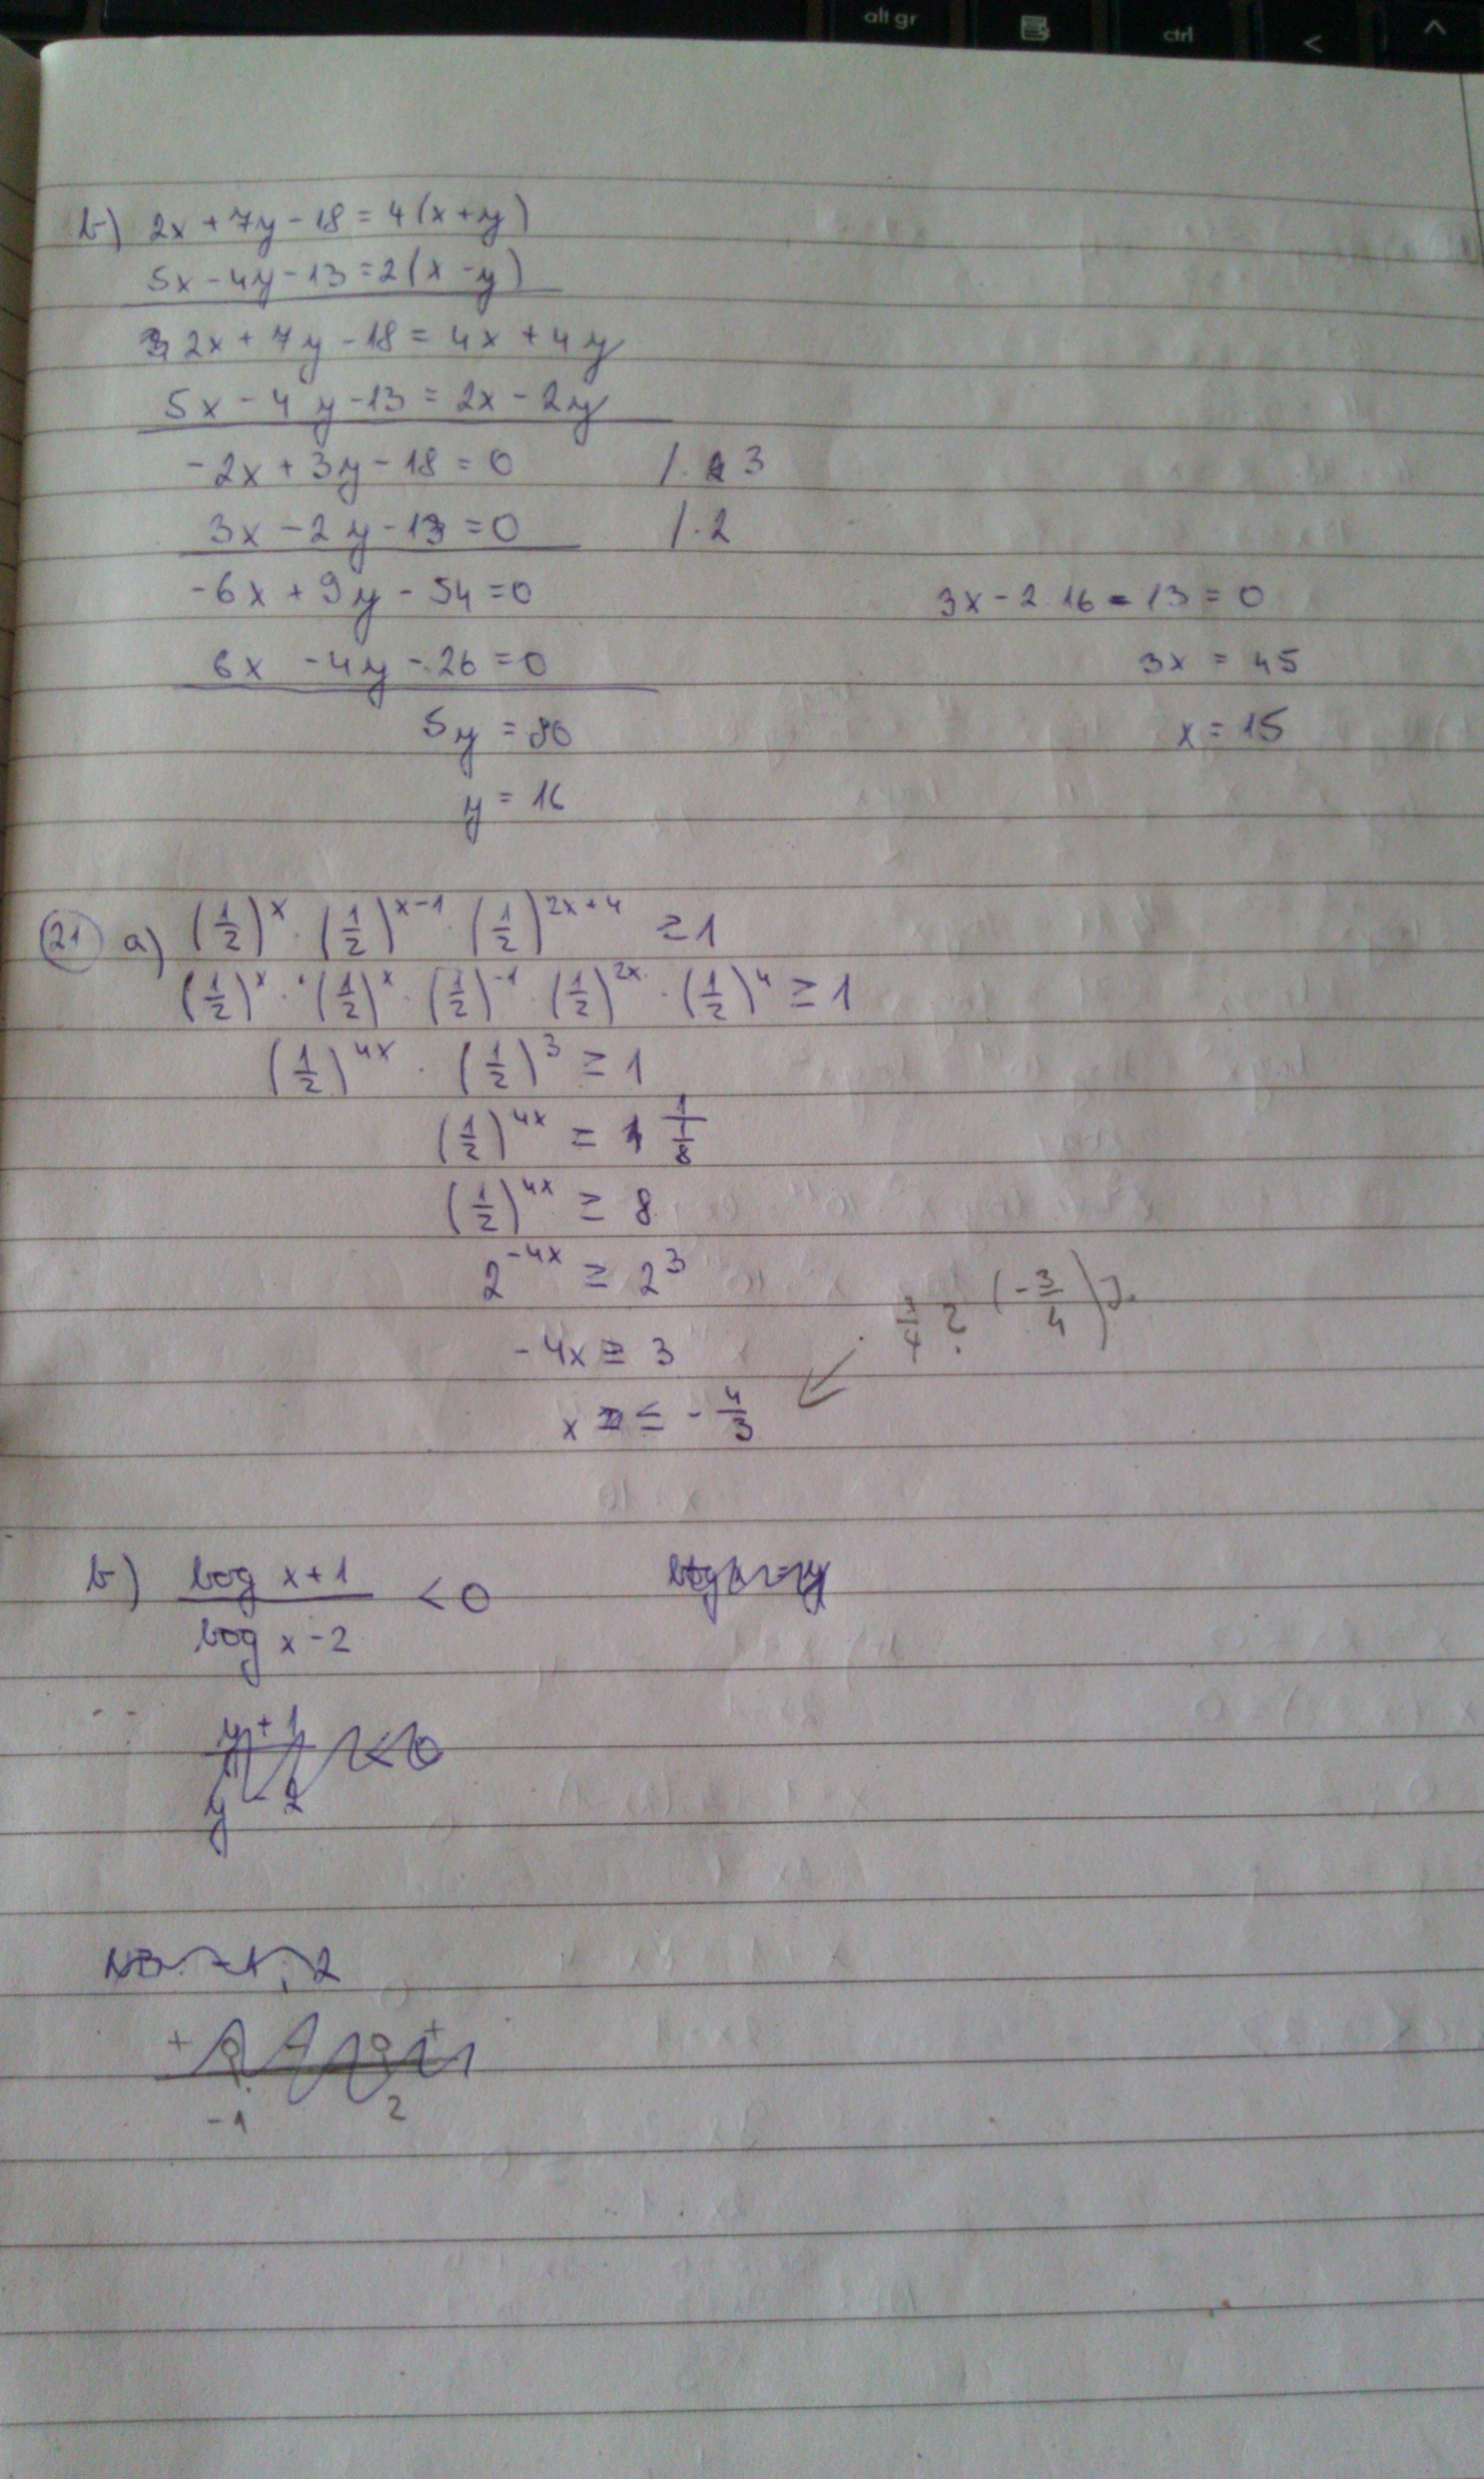 alt gr
ctrl
<
^
b) 2x + 7y - 18 = 4(x+y)
5x - 4y - 13 = 2(x - y)
2x + 7y - 18 = 4x + 4y
5x - 4y - 13 = 2x - 2y
-2x + 3y - 18 = 0 /. 3
3x - 2y - 13 = 0 /. 2
-6x + 9y - 54 = 0
6x - 4y - 26 = 0
5y = 80
y = 16
3x - 2. 16 - 13 = 0
3x = 45
x = 15
21 a) (1/2)^x · (1/2)^(x-1) · (1/2)^(2x+4) ≥ 1
(1/2)^x · (1/2)^x · (1/2)^(-1) · (1/2)^(2x) · (1/2)^4 ≥ 1
(1/2)^(4x) · (1/2)^3 ≥ 1
(1/2)^(4x) = 1/(1/8)
(1/2)^(4x) ≥ 8
2^(-4x) ≥ 2^3
-4x ≥ 3
x ≤ - 4/3
3/4 ? (-3/4)
b) (log x+1)/(log x-2) < 0
y+1
y-2 <0
-1 2